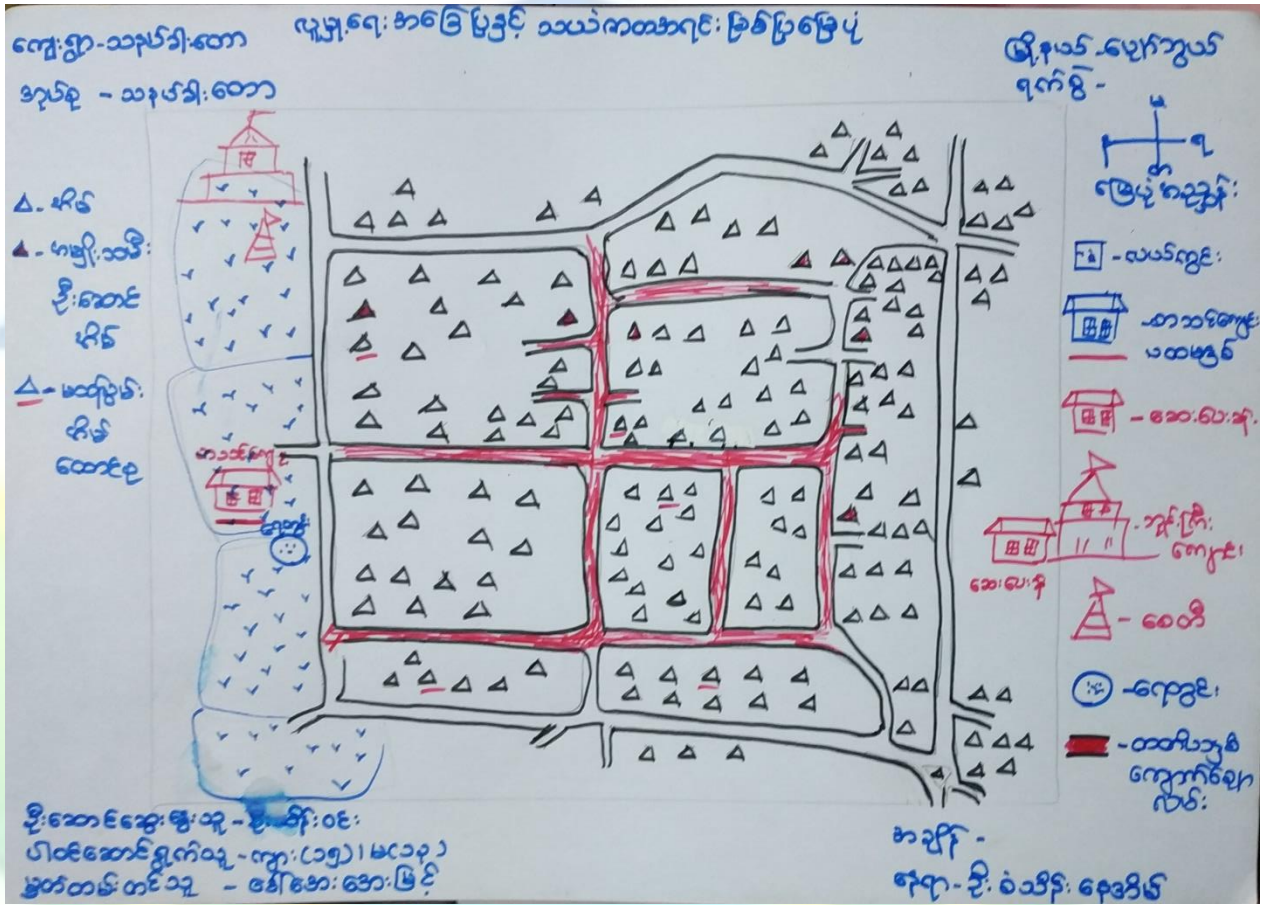 လူမှုရေးအခြေပြနှင့် သယံဇာတအရင်းအမြစ်ပြမြေပုံ
ကျေးရွာ-သနပ်ခါးတော
အုပ်စု - သနပ်ခါးတော
မြို့နယ် -ပျော်ဘွယ်
ရက်စွဲ -
မ
ရ
တ
မြေပုံအညွှန်း
△ - အိမ်
▲ - အမျိုးသမီး
ဦးဆောင်
အိမ်
△ - မသန်စွမ်း
အိမ်
ထောင်စု
-လယ်ကွင်း
-စာသင်ကျောင်း
ပထမနှစ်
-ဆေးပေးခန်း
-ဘုန်းကြီး
ကျောင်း
ဆေးပေးခန်း
- စေတီ
-ရေတွင်း
-တတိယနှစ်
ကျောက်ချော
လမ်း
စာသင်ကျောင်း
ရေတွင်း
ဦးဆောင်ဆွေးနွေးသူ -ဦးစိန်ဝင်း
ပါဝင်ဆောင်ရွက်သူ -ကျား(၁၅)၊မ(၁၃)
မှတ်တမ်းတင်သူ - ဒေါ်အေးအေးမြင့်
အချိန် -
နေရာ-ဦးစံသိန်းနေအိမ်